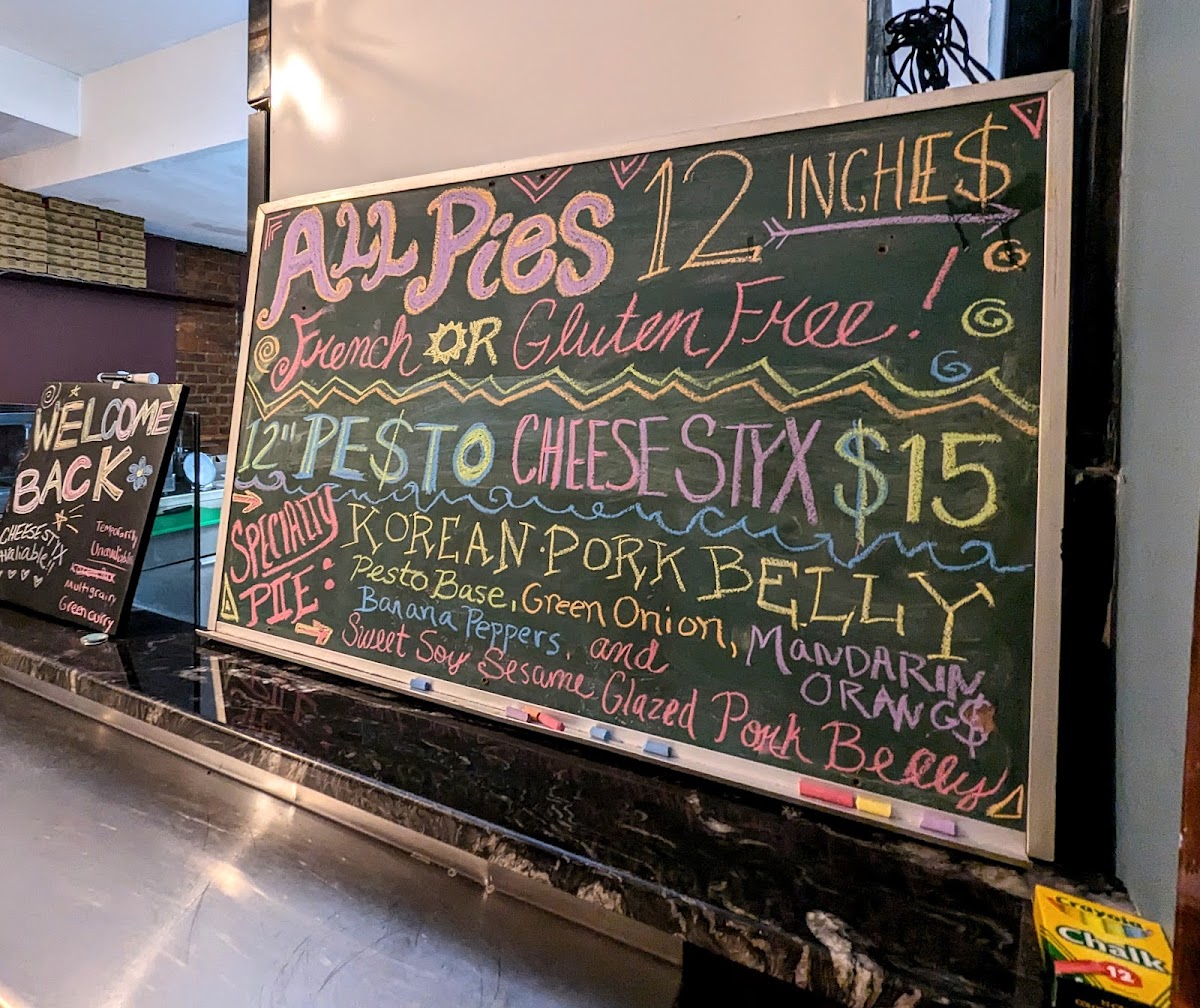 ALL Pies 12 INCHE$
French OR Gluten Free!
12" PE$TO CHEESE STYX $15
SPECIALTY PIE:
KOREAN·PORK BELLY
Pesto Base, Green Onion, MANDARIN ORANG$
Banana Peppers, and
Sweet Soy Sesame Glazed Pork Belly
WELCOME
BACK
CHEESESTYX
avaliable!!
Temporarily
Unavailable
Multigrain
Green curry
Crayola
Chalk
12